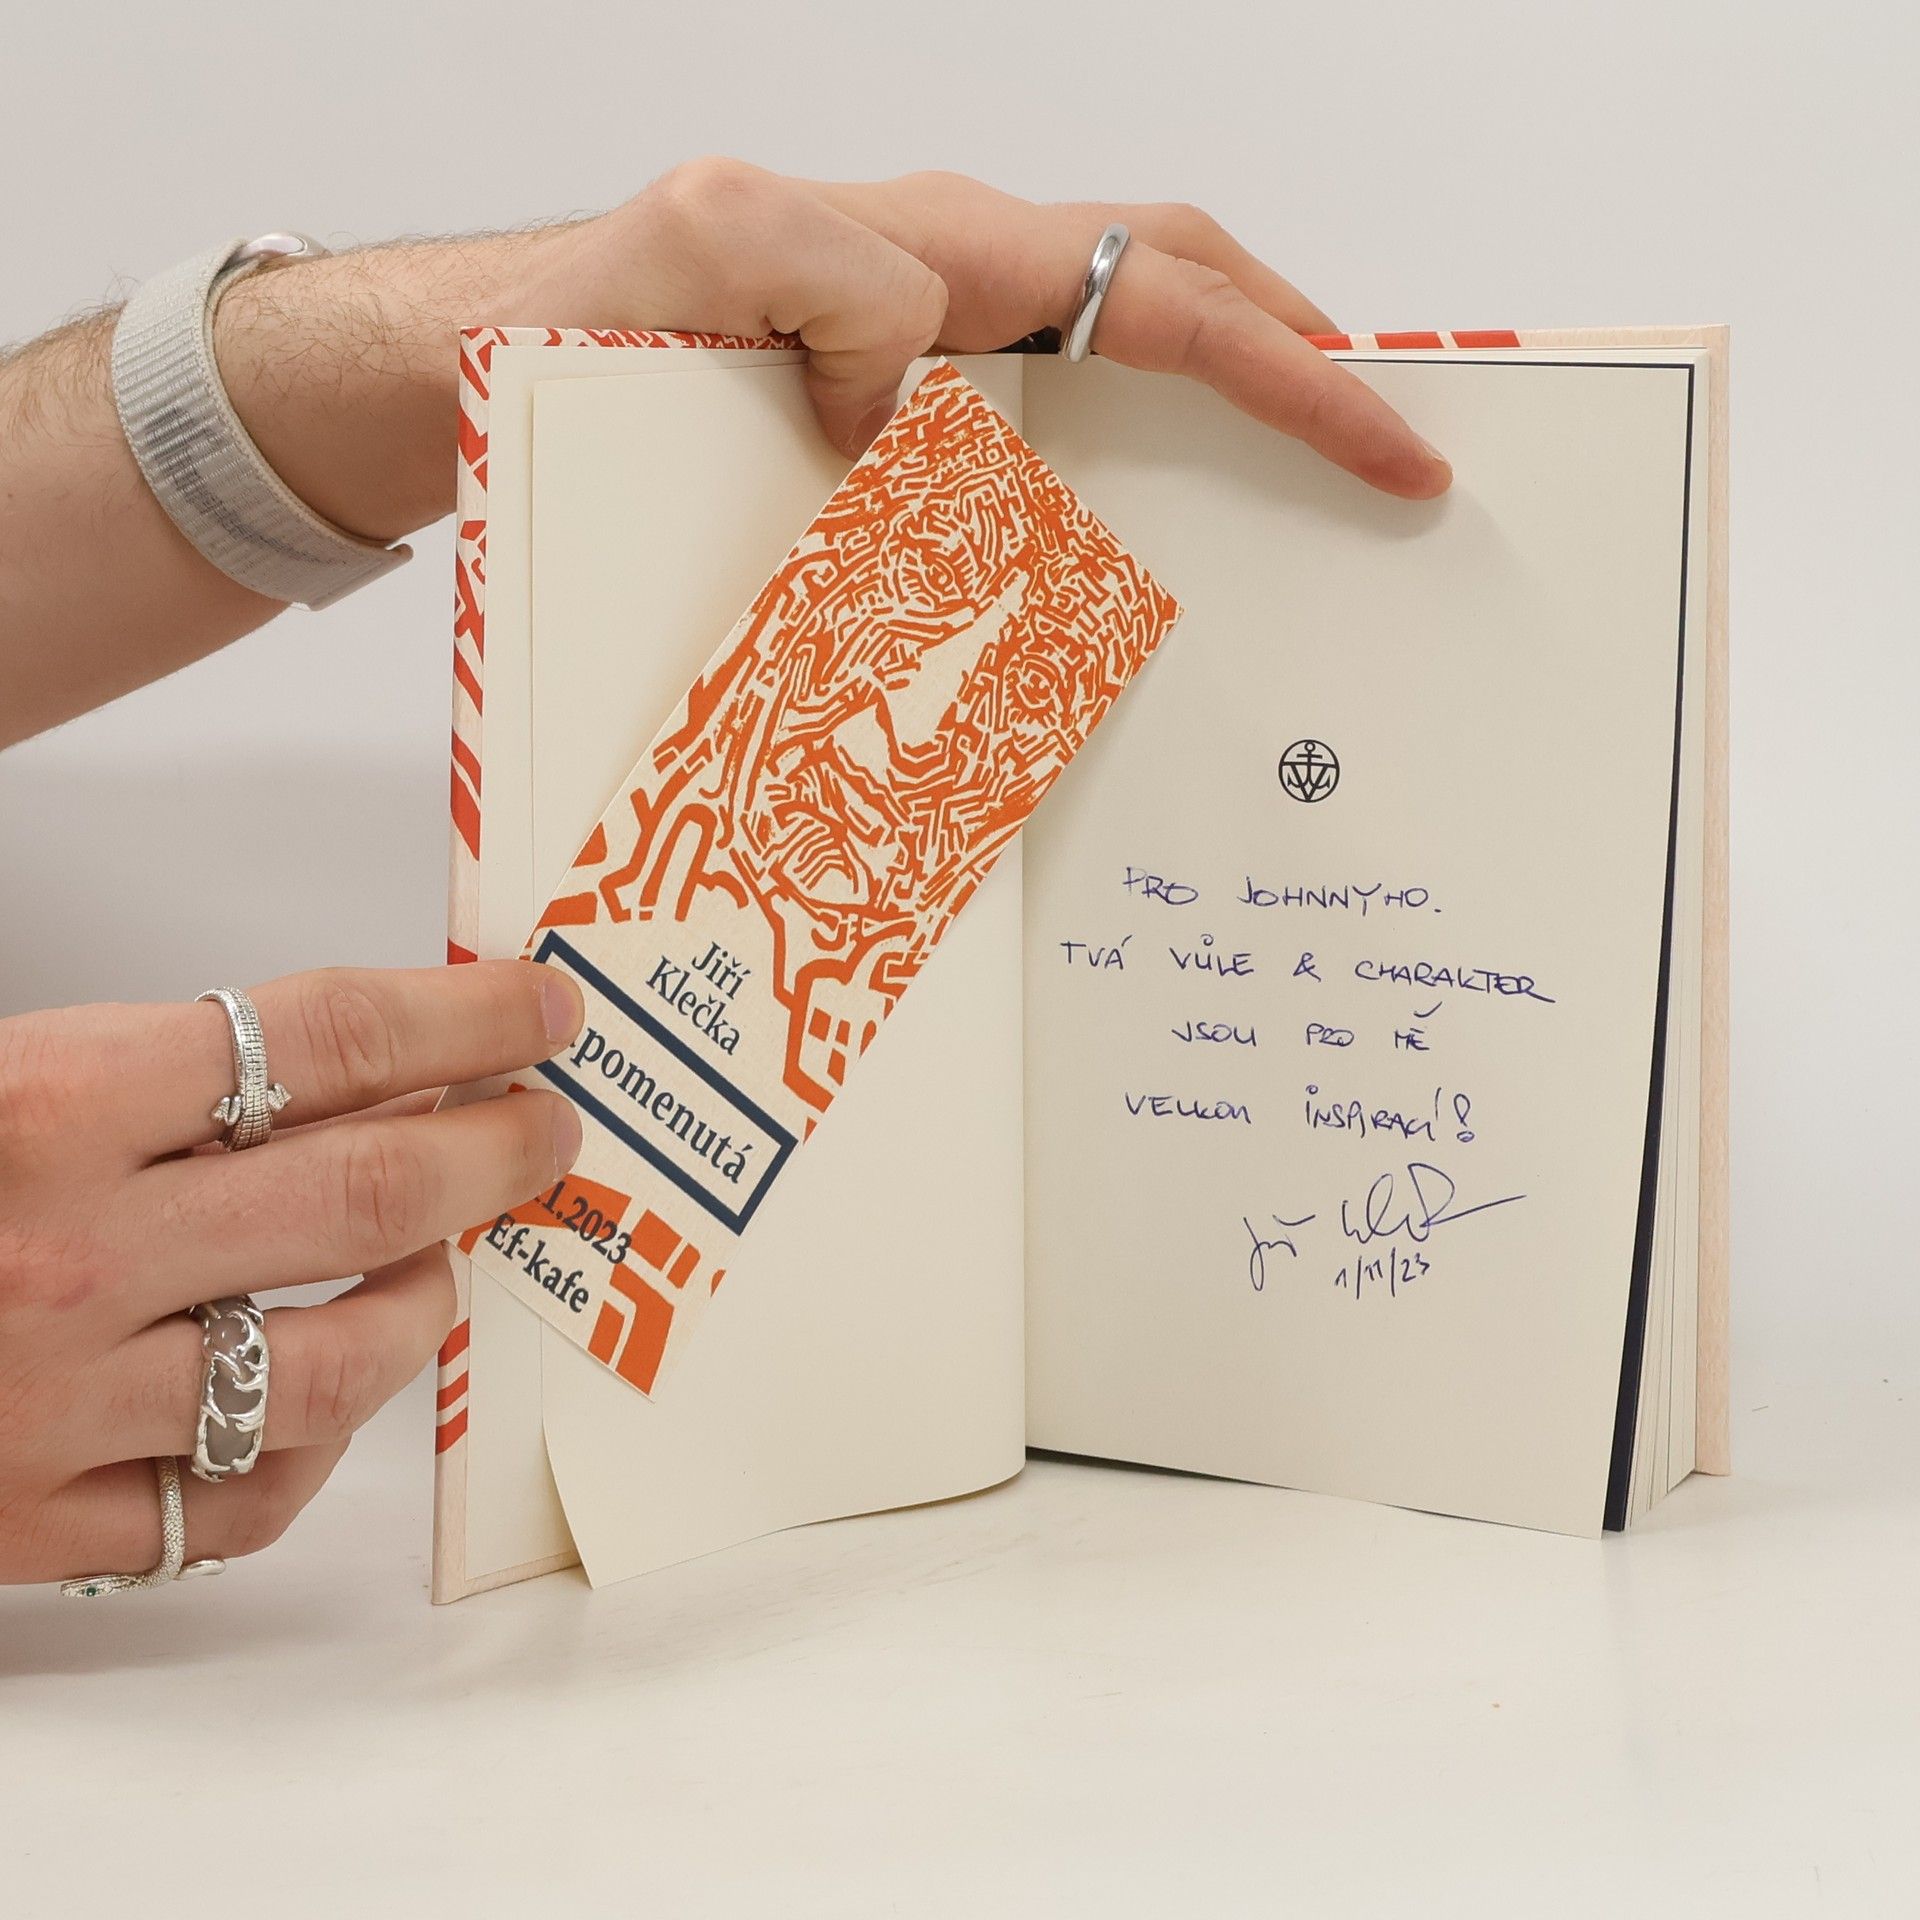 Jiří
Klečka
pomenutá
11.2023
Ef-kafe
PRO JOHNNYHO.
TVÁ VŮLE & CHARAKTER
JSOU PRO MĚ
VELKOU INSPIRACÍ!
1/11/23